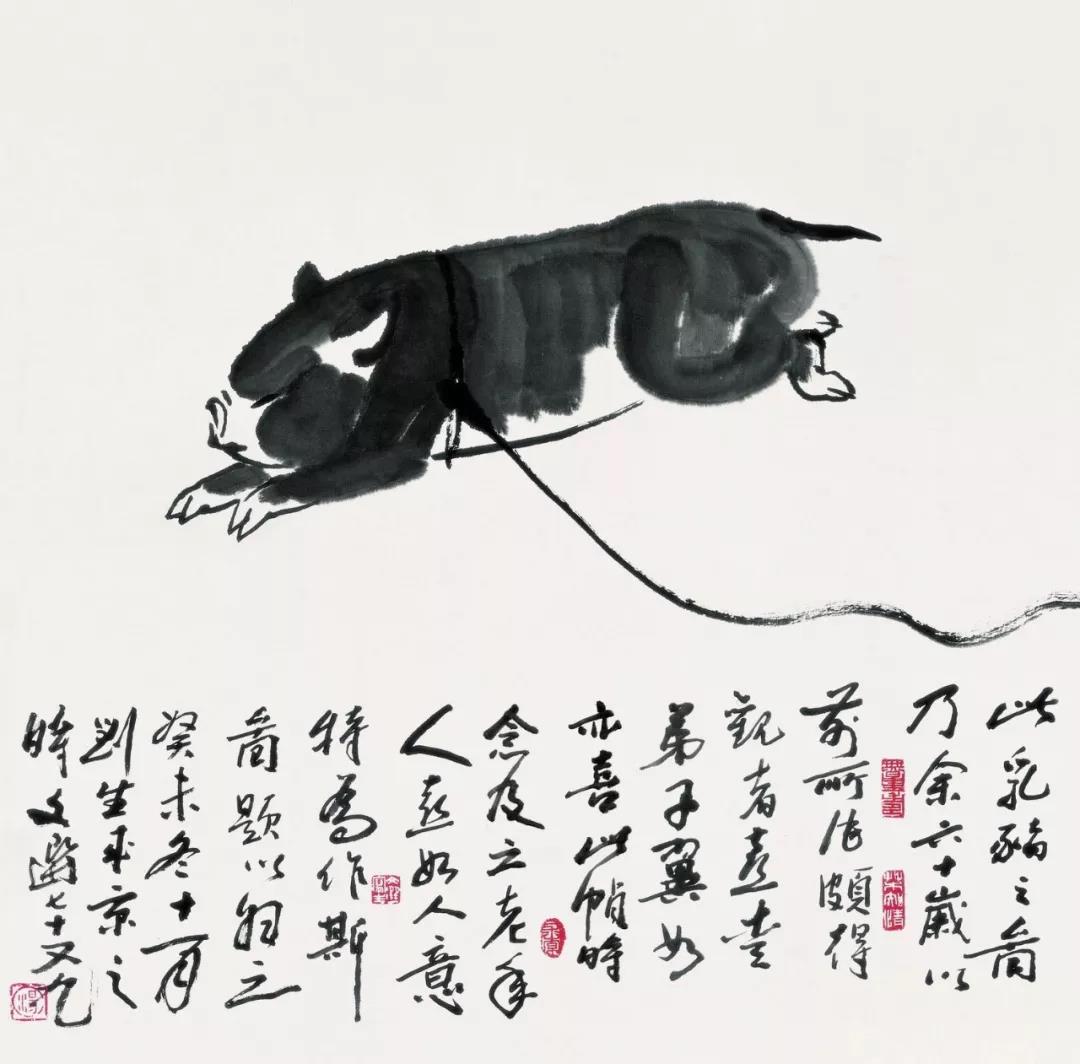 此乳豬之啚
乃余六十歲以
前所作頗得
觀者喜愛
弟子翼如
亦喜此幀時
念及之老年
人喜如人意
特為作斯
啚題以歸之
癸未冬十一月
劉生來京之
時文選七十又九